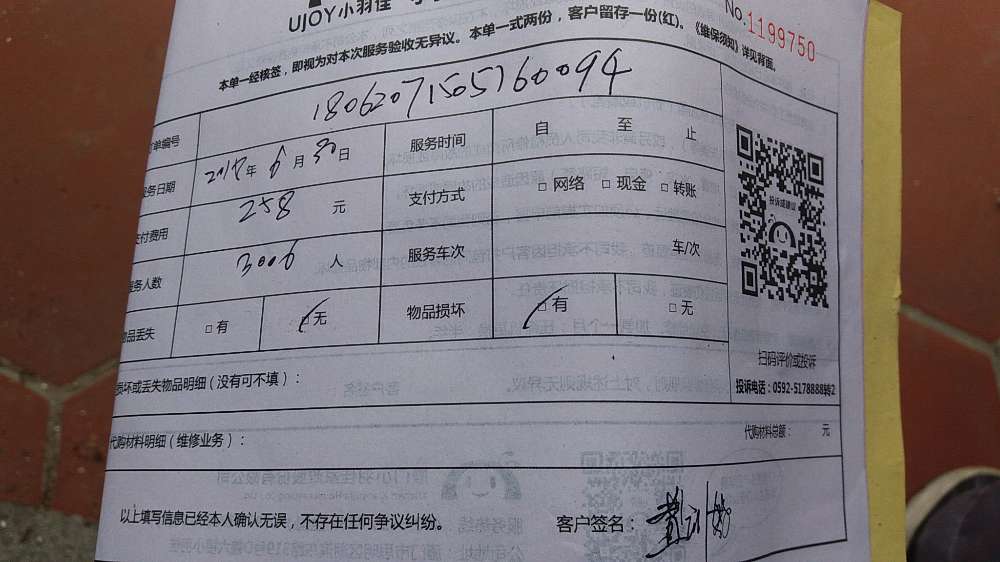 UJOY小羽佳
No.1199750
本单一经核签，即视为对本次服务验收无异议。本单一式两份，客户留存一份(红)。《维保须知》详见背面。
单编号 18062071505160094
服务日期 2018年6月30日 服务时间 自 至 止
支付费用 258 元 支付方式 □网络 □现金 □转账
服务人数 3006 人 服务车次 车/次
物品丢失 □有 □无 物品损坏 □有 □无
损坏或丢失物品明细（没有可不填）：
投诉或建议
扫码评价或投诉
投诉电话：0592-5178888转2
代购材料明细（维修业务）： 代购材料总额： 元
以上填写信息已经本人确认无误，不存在任何争议纠纷。 客户签名：